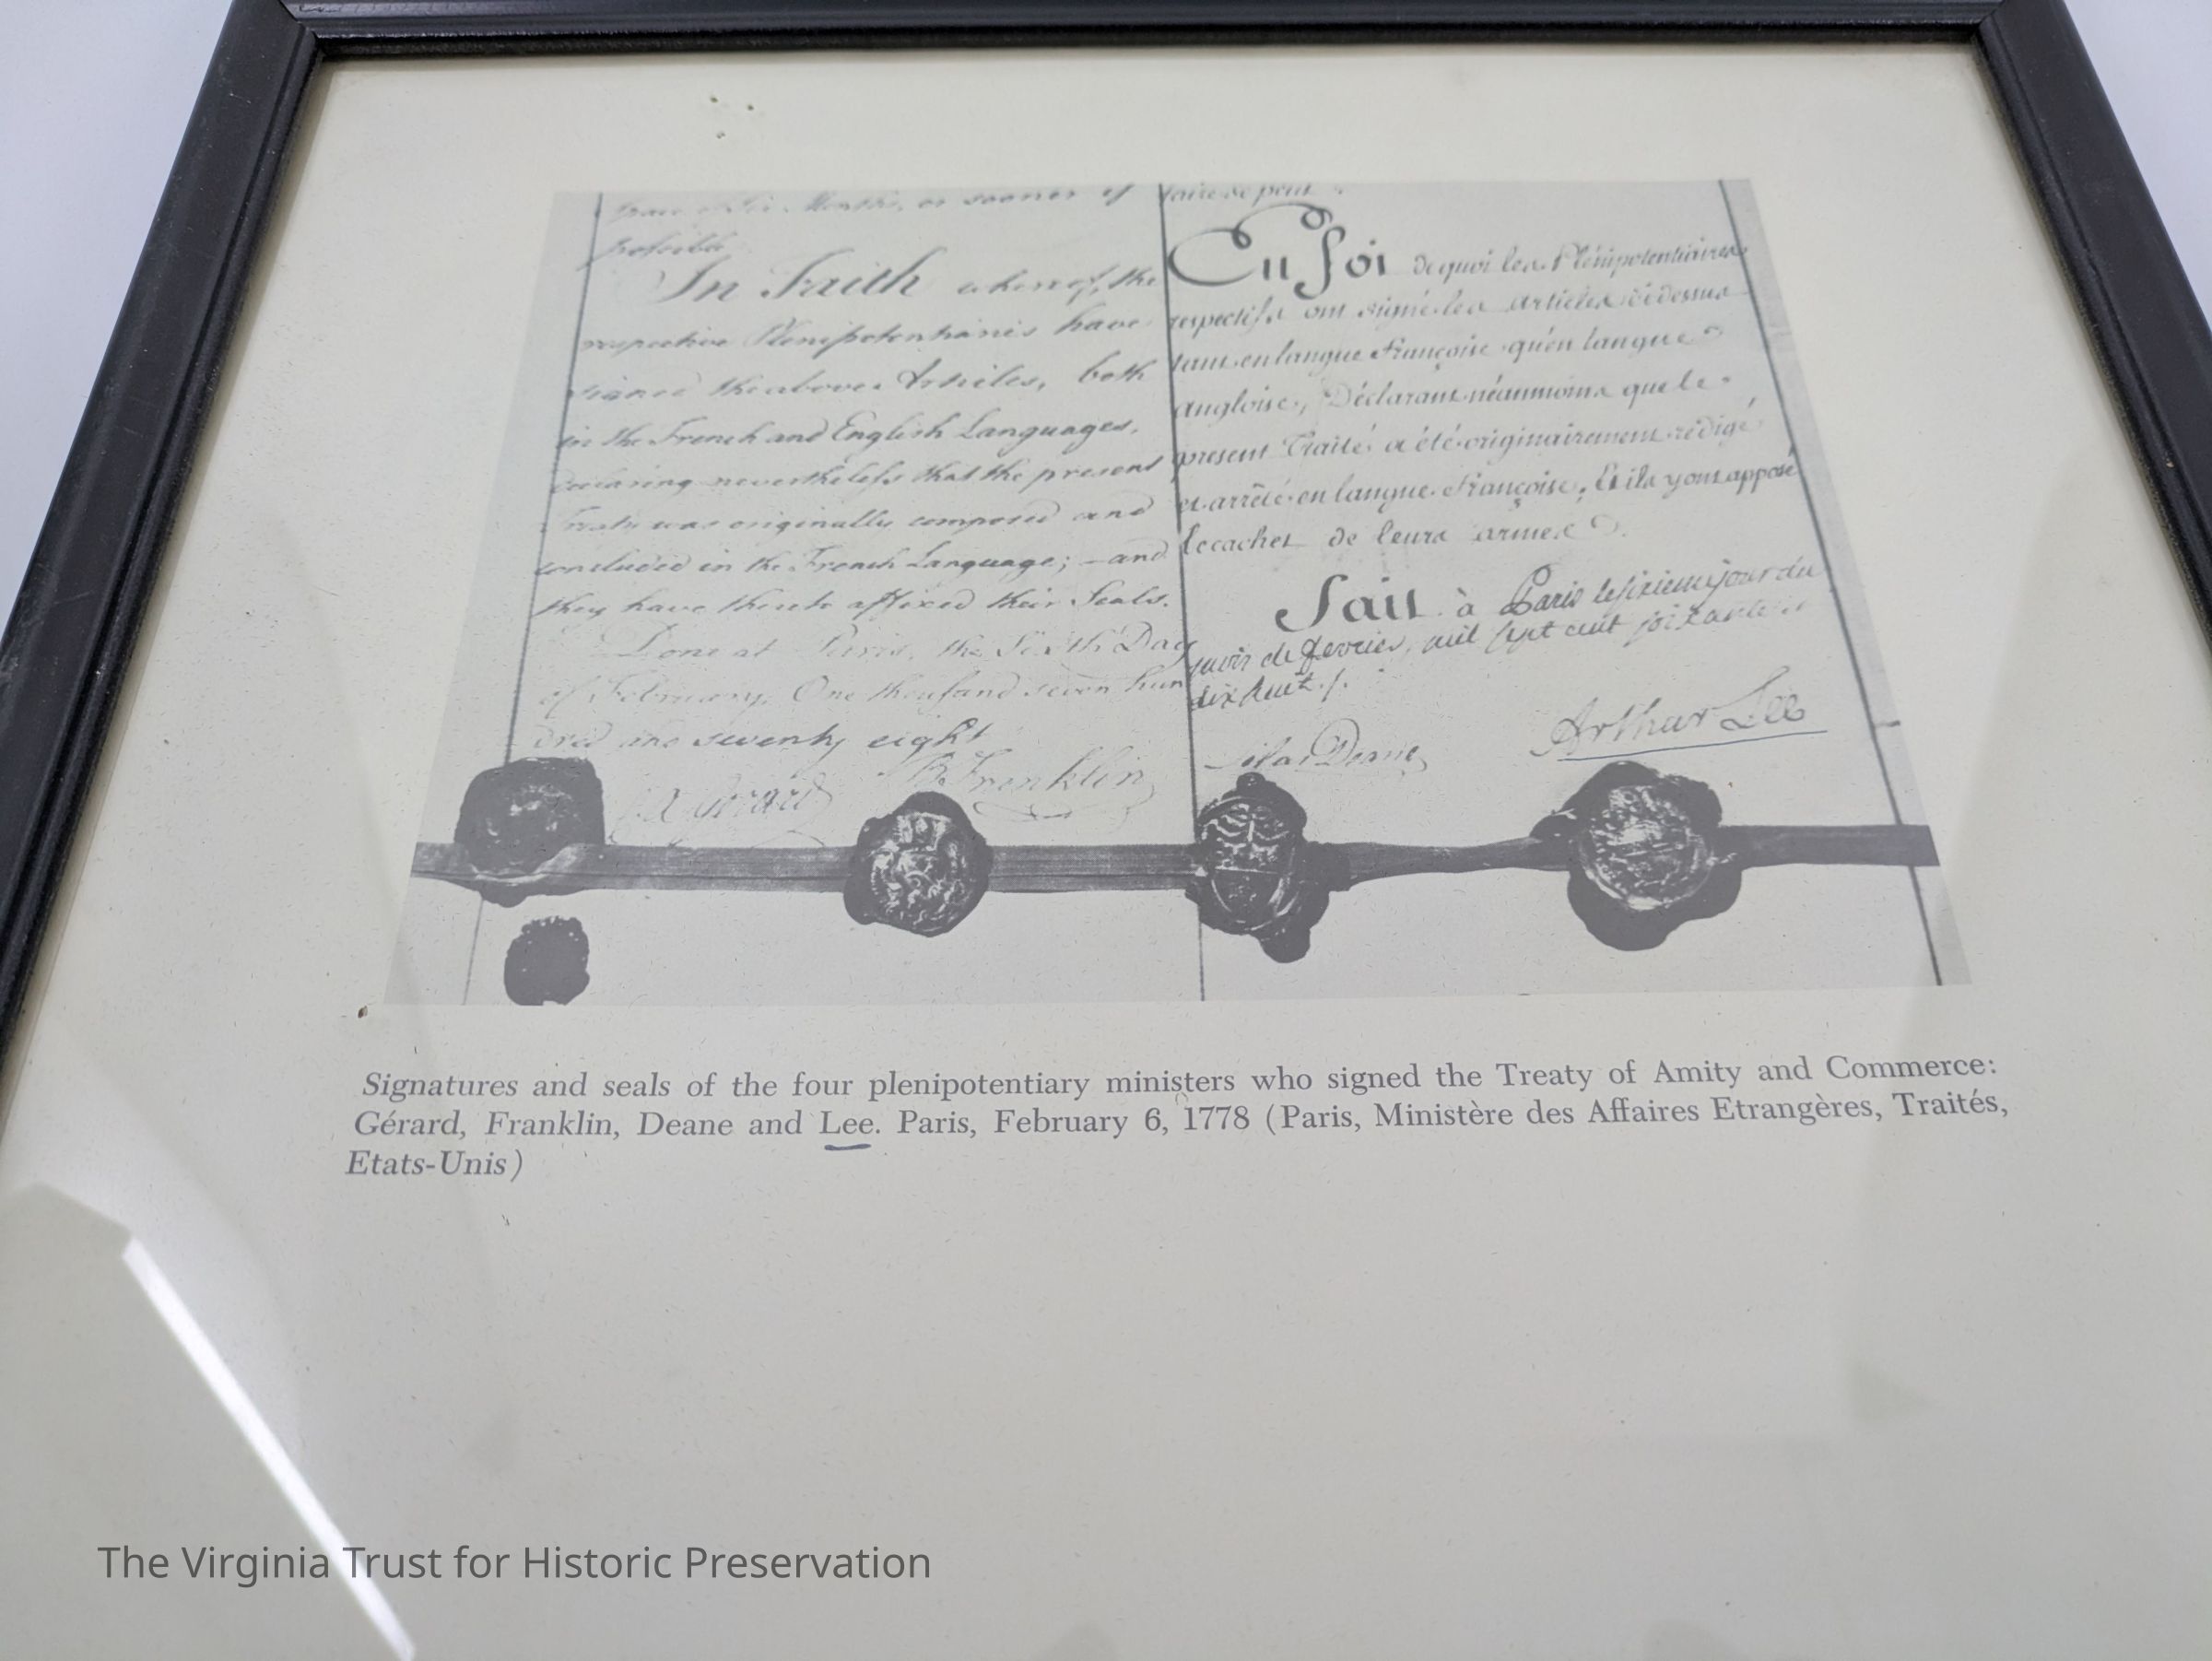 space of Six Months, or sooner if
possible
In Faith whereof, the
respective Plenipotentiaries have
signed the above Articles, both
in the French and English Languages,
declaring nevertheless that the present
Treaty was originally composed and
concluded in the French Language; – and
they have thereto affixed their Seals.
Done at Paris, the Sixth Day
of February, One thousand seven hun
dred and seventy eight
faire se peut
En foi de quoi les Plénipotentiaires
respectifs ont signé les articles ci dessus
tant en langue Françoise qu'en langue
Angloise, Déclarant néanmoins que le
présent Traité a été originairement redigé
et arrêté en langue Françoise, Et ils y ont apposé
le cachet de leurs armes.
Fait à Paris le sixieme jour du
mois de fevrier, mil sept cent soixante et
dix huit ./.
Gerard
B Franklin
Silas Deane
Arthur Lee
Signatures and seals of the four plenipotentiary ministers who signed the Treaty of Amity and Commerce:
Gérard, Franklin, Deane and Lee. Paris, February 6, 1778 (Paris, Ministère des Affaires Etrangères, Traités,
Etats-Unis)
The Virginia Trust for Historic Preservation